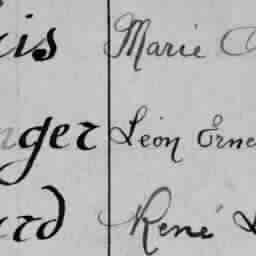 is Marie
ger Léon Erne
rd René